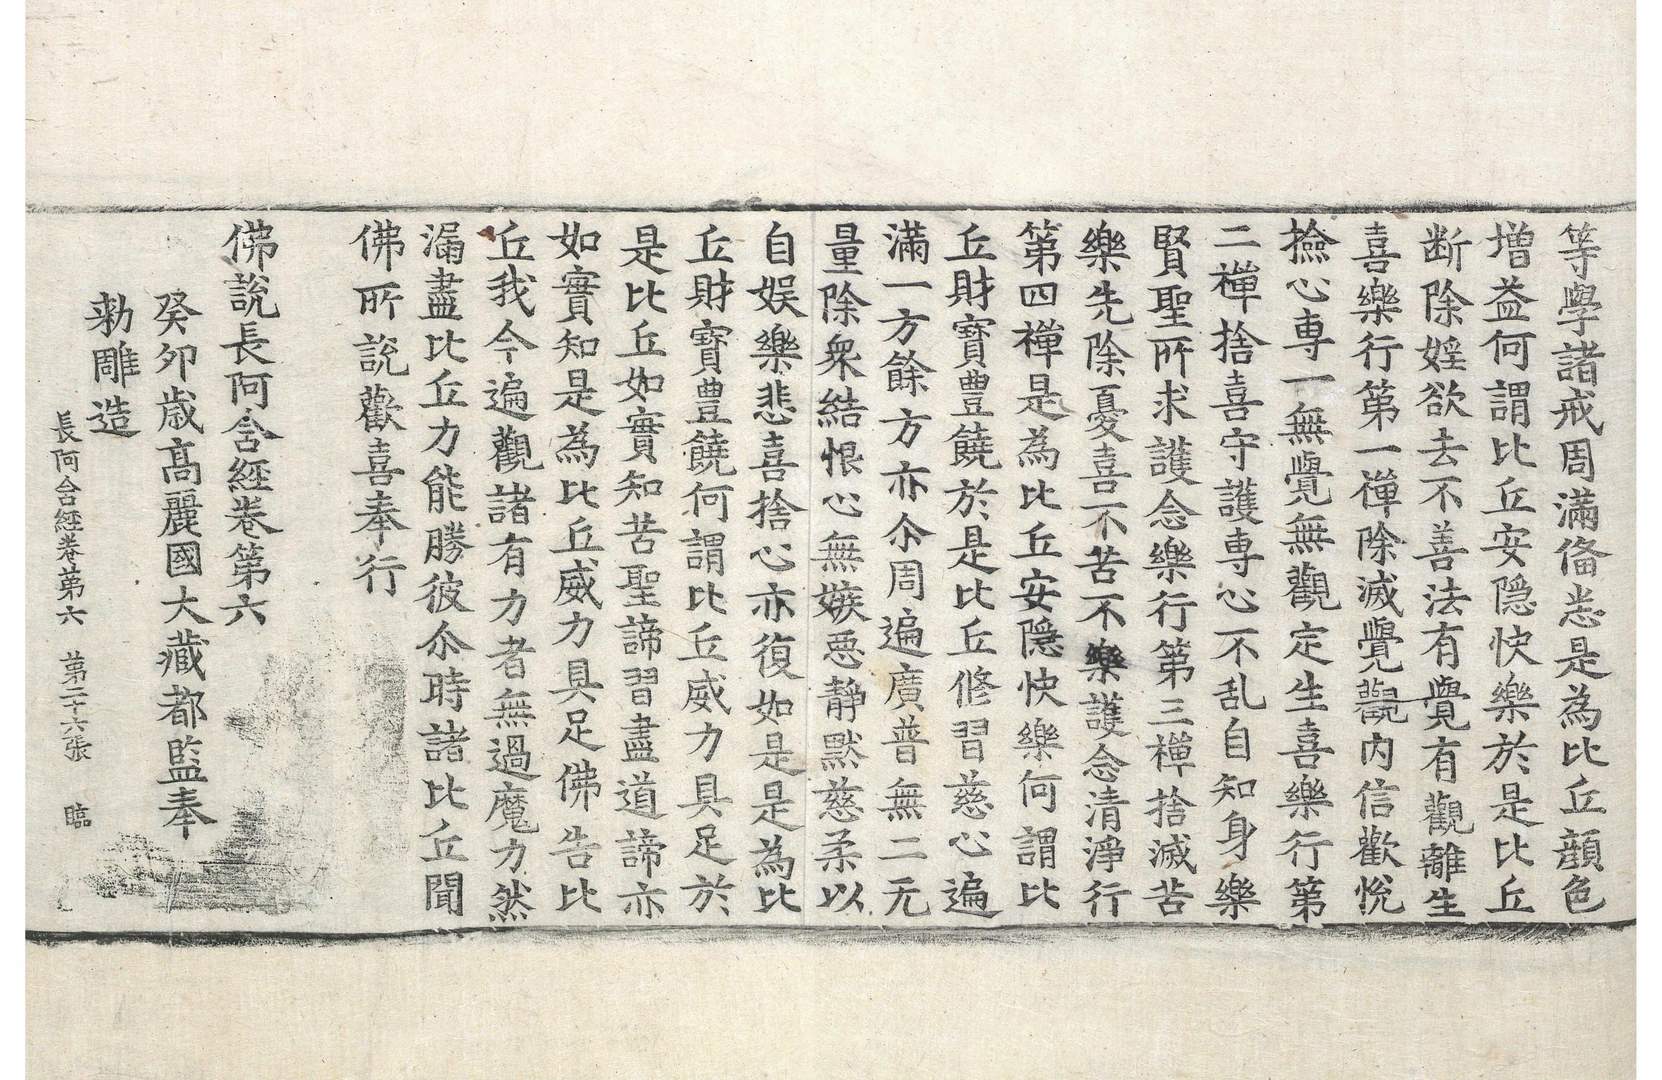 等學諸戒周滿俻悉是為比丘顔色
増益何謂比丘安隱快樂於是比丘
断除婬欲去不善法有覺有觀離生
喜樂行第一禪除滅覺觀内信歡悅
撿心専一無覺無觀定生喜樂行第
二禪捨喜守護専心不乱自知身樂
賢聖所求護念樂行第三禪捨滅苦
樂先除憂喜不苦不樂護念清淨行
第四禪是為比丘安隱快樂何謂比
丘財寳豊饒於是比丘修習慈心遍
滿一方餘方亦尒周遍廣普無二无
量除衆結恨心無嫉惡静黙慈柔以
自娱樂悲喜捨心亦復如是是為比
丘財寳豊饒何謂比丘威力具足於
是比丘如實知苦聖諦習盡道諦亦
如實知是為比丘威力具足佛告比
丘我今遍觀諸有力者無過魔力然
漏盡比丘力能勝彼尒時諸比丘聞
佛所説歡喜奉行
佛説長阿含經卷第六
癸卯歲高麗國大藏都監奉
勅雕造
長阿含經卷第六　第二十六張　臨